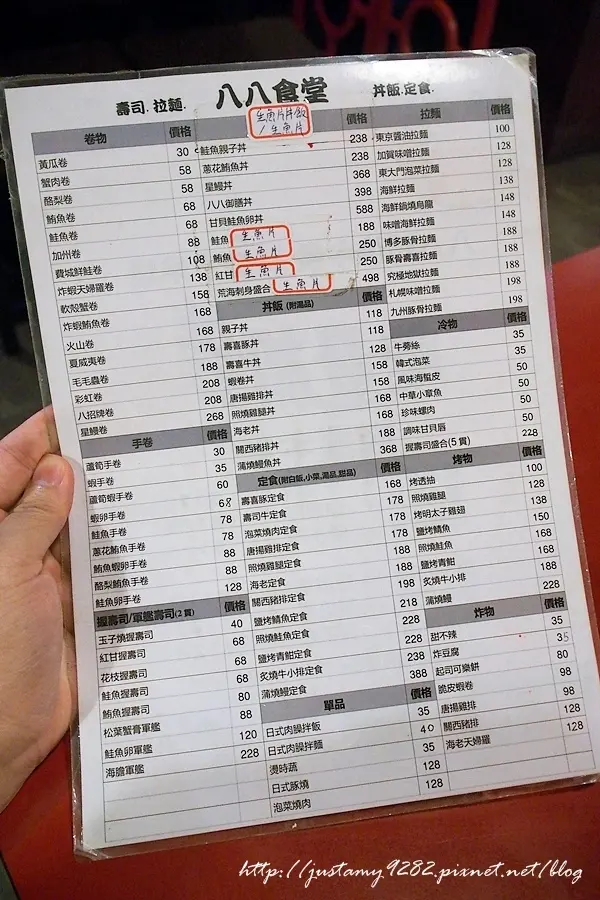 八八食堂
壽司.拉麵.
丼飯.定食.
卷物 價格
黃瓜卷 30
蟹肉卷 58
酪梨卷 58
鮪魚卷 68
鮭魚卷 68
加州卷 88
費城鮮鮭卷 108
炸蝦天婦羅卷 138
軟殼蟹卷 158
炸蝦鮪魚卷 168
火山卷 168
夏威夷卷 178
毛毛蟲卷 188
彩虹卷 208
八招牌卷 208
星鰻卷 268
手卷 價格
蘆筍手卷 30
蝦手卷 35
蘆筍蝦手卷 60
蝦卵手卷 68
鮭魚手卷 78
蔥花鮪魚手卷 78
鮪魚蝦卵手卷 88
酪梨鮪魚手卷 88
鮭魚卵手卷 128
握壽司/軍艦壽司(2貫) 價格
玉子燒握壽司 40
紅甘握壽司 68
花枝握壽司 68
鮭魚握壽司 68
鮪魚握壽司 80
松葉蟹膏軍艦 88
鮭魚卵軍艦 120
海膽軍艦 228
生魚片丼飯
/生魚片
價格
鮭魚親子丼 238
蔥花鮪魚丼 238
星鰻丼 368
八八御膳丼 398
甘貝鮭魚卵丼 588
鮭魚 生魚片 188
鮪魚 生魚片 250
紅甘 生魚片 250
荒海刺身盛合 生魚片 498
丼飯(附湯品) 價格
親子丼 118
壽喜豚丼 118
壽喜牛丼 128
蝦卷丼 158
唐揚雞排丼 158
照燒雞腿丼 168
海老丼 168
關西豬排丼 188
蒲燒鰻魚丼 368
定食(附白飯,小菜,湯品,甜品) 價格
壽喜豚定食 168
壽司牛定食 178
泡菜燒肉定食 178
唐揚雞排定食 178
照燒雞腿定食 188
海老定食 188
關西豬排定食 198
鹽烤鯖魚定食 218
照燒鮭魚定食 228
鹽烤青魽定食 228
炙燒牛小排定食 238
蒲燒鰻定食 388
單品 價格
日式肉燥拌飯 35
日式肉燥拌麵 40
燙時蔬 35
日式豚燒 128
泡菜燒肉 128
拉麵
東京醬油拉麵 100
加賀味噌拉麵 128
東大門泡菜拉麵 128
海鮮拉麵 138
海鮮鍋燒烏龍 148
味噌海鮮拉麵 148
博多豚骨拉麵 138
豚骨壽喜拉麵 168
究極地獄拉麵 148
札幌味噌拉麵 198
九州豚骨拉麵 198
冷物 價格
牛蒡絲 35
韓式泡菜 35
風味海蜇皮 50
中華小章魚 50
珍味螺肉 50
調味甘貝唇 50
握壽司盛合(5貫) 228
烤物 價格
烤透抽 100
照燒雞腿 128
烤明太子雞翅 138
鹽烤鯖魚 150
照燒鮭魚 168
鹽烤青魽 168
炙燒牛小排 188
蒲燒鰻 228
炸物 價格
甜不辣 35
炸豆腐 35
起司可樂餅 80
脆皮蝦卷 98
唐揚雞排 98
關西豬排 128
海老天婦羅 128
http://justamy9282.pixnet.net/blog